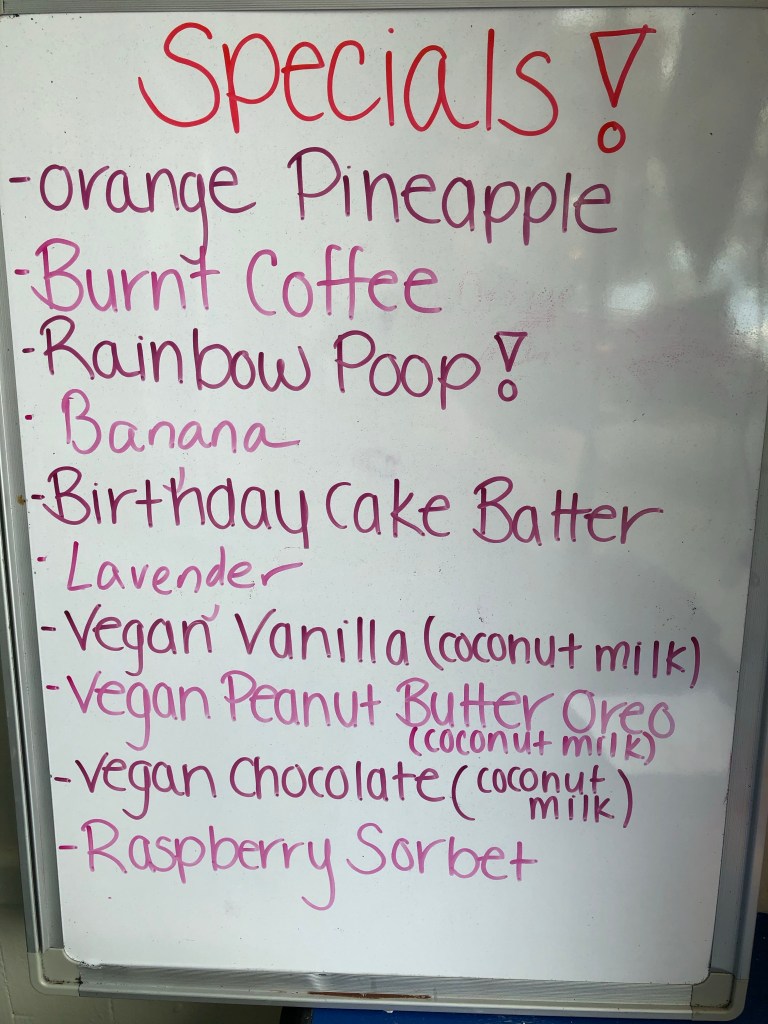 Specials!
-orange Pineapple
-Burnt Coffee
-Rainbow Poop!
-Banana
-Birthday Cake Batter
-Lavender
-Vegan Vanilla (coconut milk)
-Vegan Peanut Butter Oreo
(coconut milk)
-Vegan Chocolate (coconut
milk)
-Raspberry Sorbet